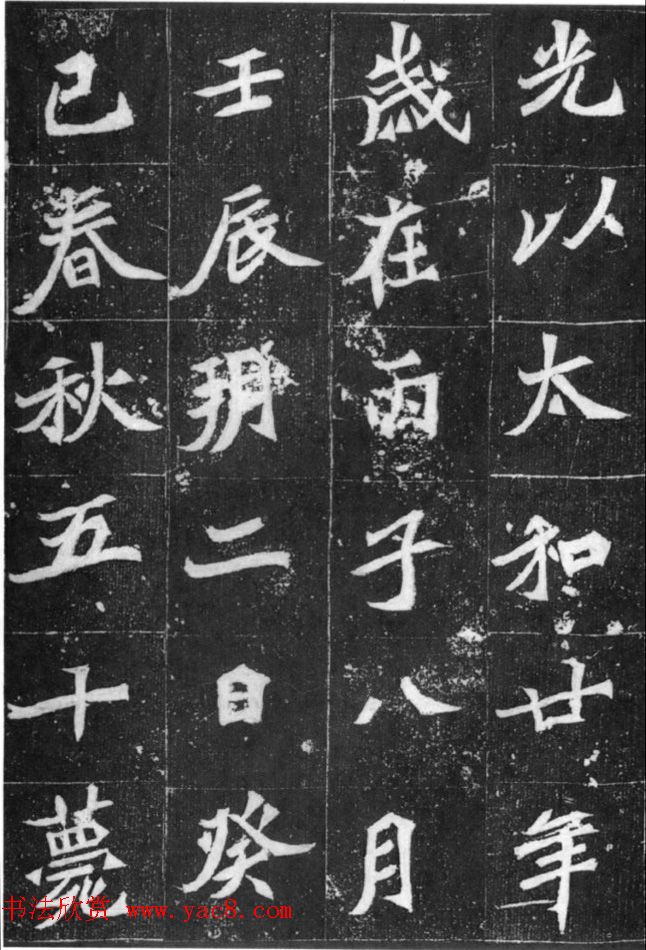 光以太和廿年
歲在丙子八月
壬辰朔二日癸
巳春秋五十薨
书法欣赏 www.yac8.com